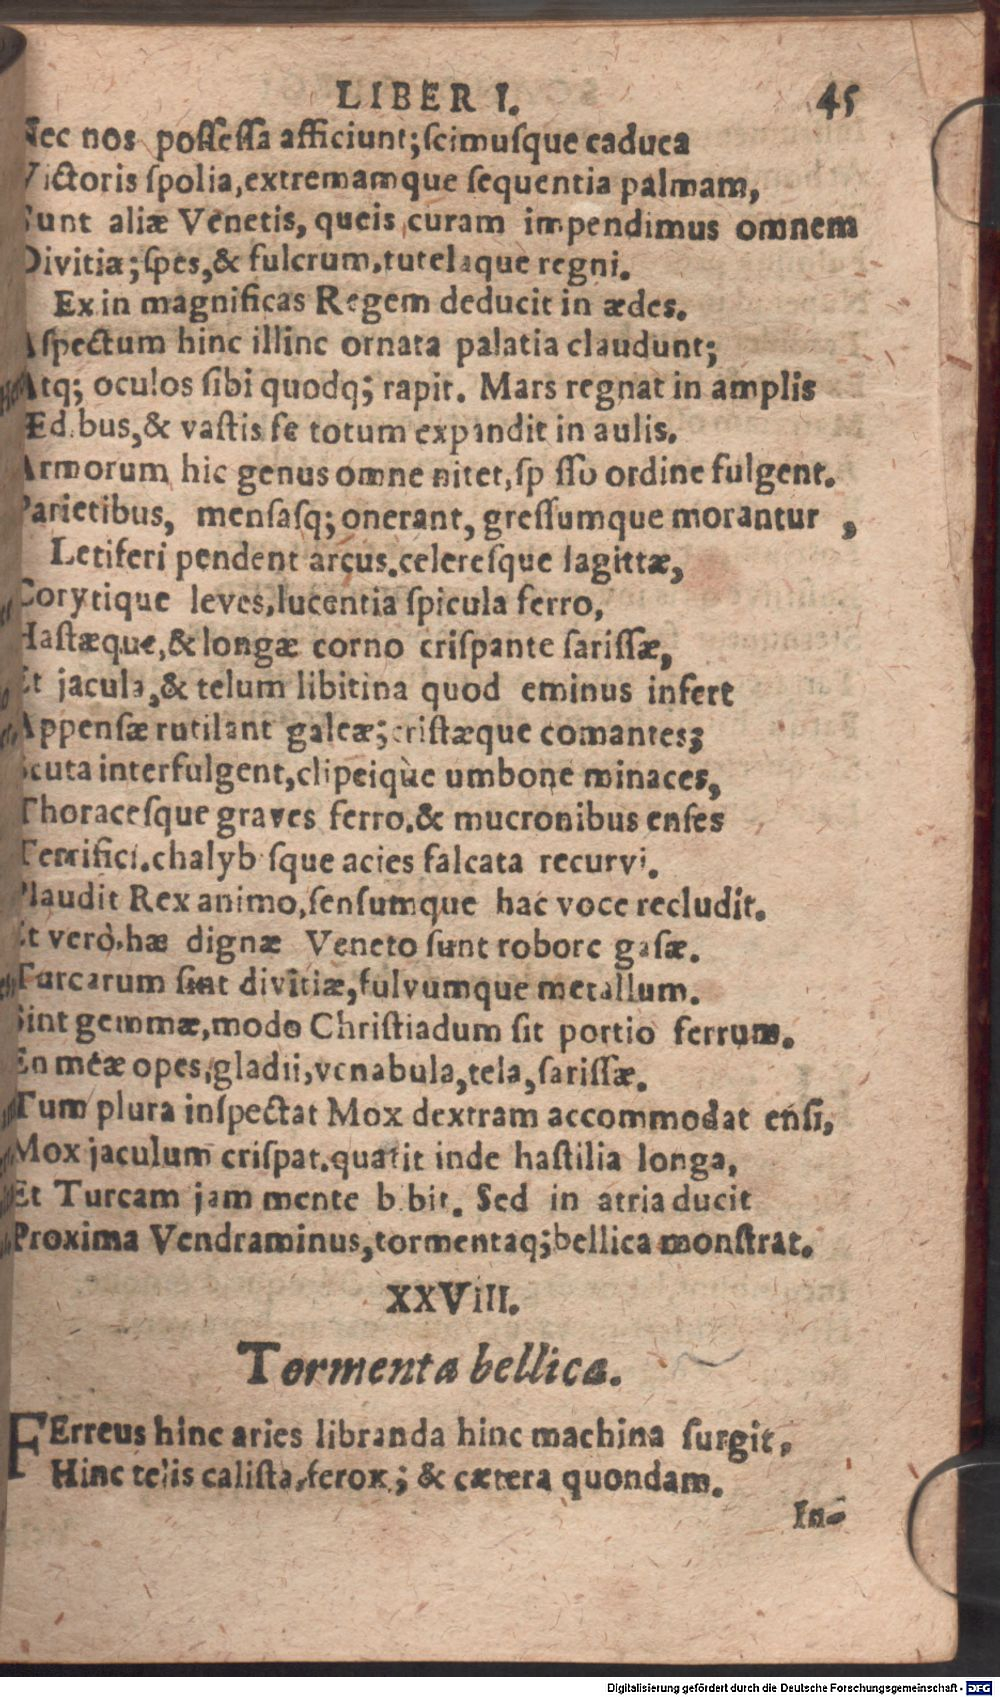 LIBER I. 45
Nec nos possessa afficiunt; scimusque caduca
Victoris spolia, extremamque sequentia palmam,
Sunt aliæ Venetis, queis curam impendimus omnem
Divitiæ; spes, & fulcrum, tutelaque regni.
Exin magnificas Regem deducit in ædes.
Aspectum hinc illinc ornata palatia claudunt;
Atq; oculos sibi quodq; rapit. Mars regnat in amplis
Æd bus, & vastis se totum expandit in aulis.
Armorum hic genus omne nitet, sp sso ordine fulgent.
Parietibus, mensasq; onerant, gressumque morantur ,
Letiferi pendent arcus. celeresque sagittæ,
Corytique leves, lucentia spicula ferro,
Hastæque, & longæ corno crispante sarissæ,
Et jacula, & telum libitina quod eminus infert
Appensæ rutilant galeæ; cristæque comantes;
Scuta interfulgent, clipeique umbone minaces,
Thoracesque graves ferro. & mucronibus enses
Terrifici. chalyb sque acies falcata recurvi.
Plaudit Rex animo, sensumque hac voce recludit.
Et verò. hæ dignæ Veneto sunt robore gasæ.
Turcarum sint divitiæ, fulvumque metallum.
Sint gemmæ, modo Christiadum sit portio ferrum.
En meæ opes, gladii, venabula, tela, sarissæ.
Tum plura inspectat Mox dextram accommodat ensi,
Mox jaculum crispat. quatit inde hastilia longa,
Et Turcam jam mente b bit. Sed in atria ducit
Proxima Vendraminus, tormentaq; bellica monstrat.
XXVIII.
Tormenta bellica.
FErreus hinc aries libranda hinc machina surgit,
Hinc telis calista, ferox; & cætera quondam.
In-
Digitalisierung gefördert durch die Deutsche Forschungsgemeinschaft - DFG